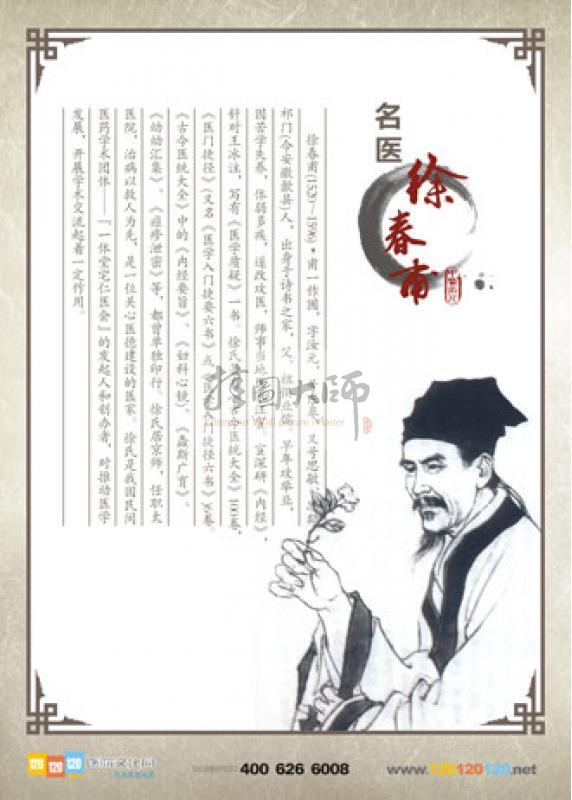 名医
徐春甫
徐春甫(1520～1596)，甫一作圃，字汝元，
又号思敏、
祁门(今安徽歙县)人，出身于诗书之家，父、祖
早年攻举业，
因苦学失养，体弱多疾，遂改攻医，师事当地
宦，深研《内经》，
针对王冰注，写有《医学质疑》一书。徐氏
医统大全》100卷，
《医门捷径》(又名《医学入门捷要六书》或《医
门捷径六书》)6卷。
《古今医统大全》中的《内经要旨》、《妇科心镜》、《螽斯广育》、
《幼幼汇集》、《痘疹泄密》等，都曾单独印行。徐氏居京师，任职太
医院，治病以救人为先，是一位关心医德建设的医家。徐氏是我国民间
医药学术团体——「一体堂宅仁医会」的发起人和创办者，对推动医学
发展，开展学术交流起着一定作用。
挂图大师
Enterprise Wall picture Master
120 120 120
400 626 6008
www.120120120.net